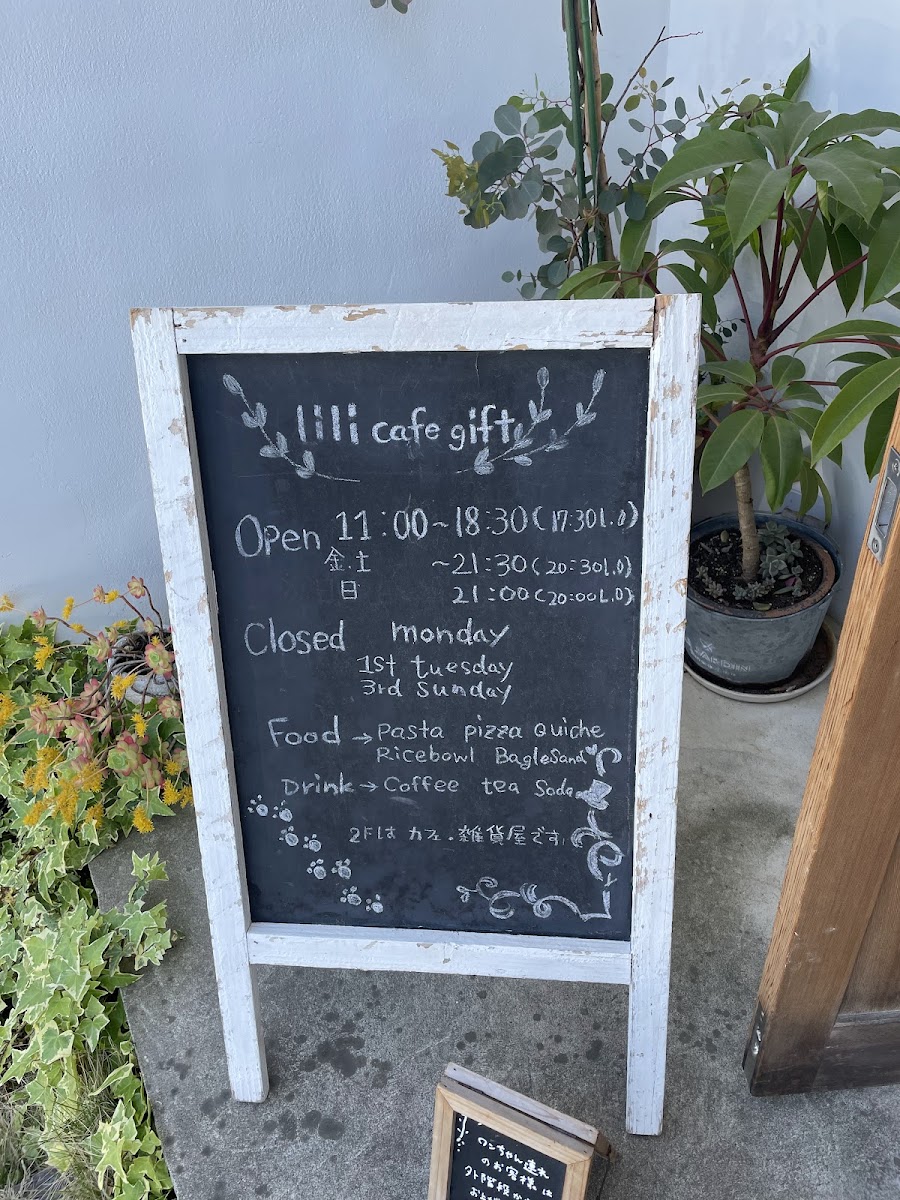 lili cafe gift
Open 11:00~18:30(17:30L.O)
金.土 ~21:30(20:30L.O)
日 21:00(20:00L.O)
Closed monday
1st tuesday
3rd Sunday
Food → Pasta pizza Quiche
Ricebowl BagleSand
Drink → Coffee tea Soda
2Fは カフェ.雑貨屋です
ワンちゃん連れ
のお客様は
外階段から